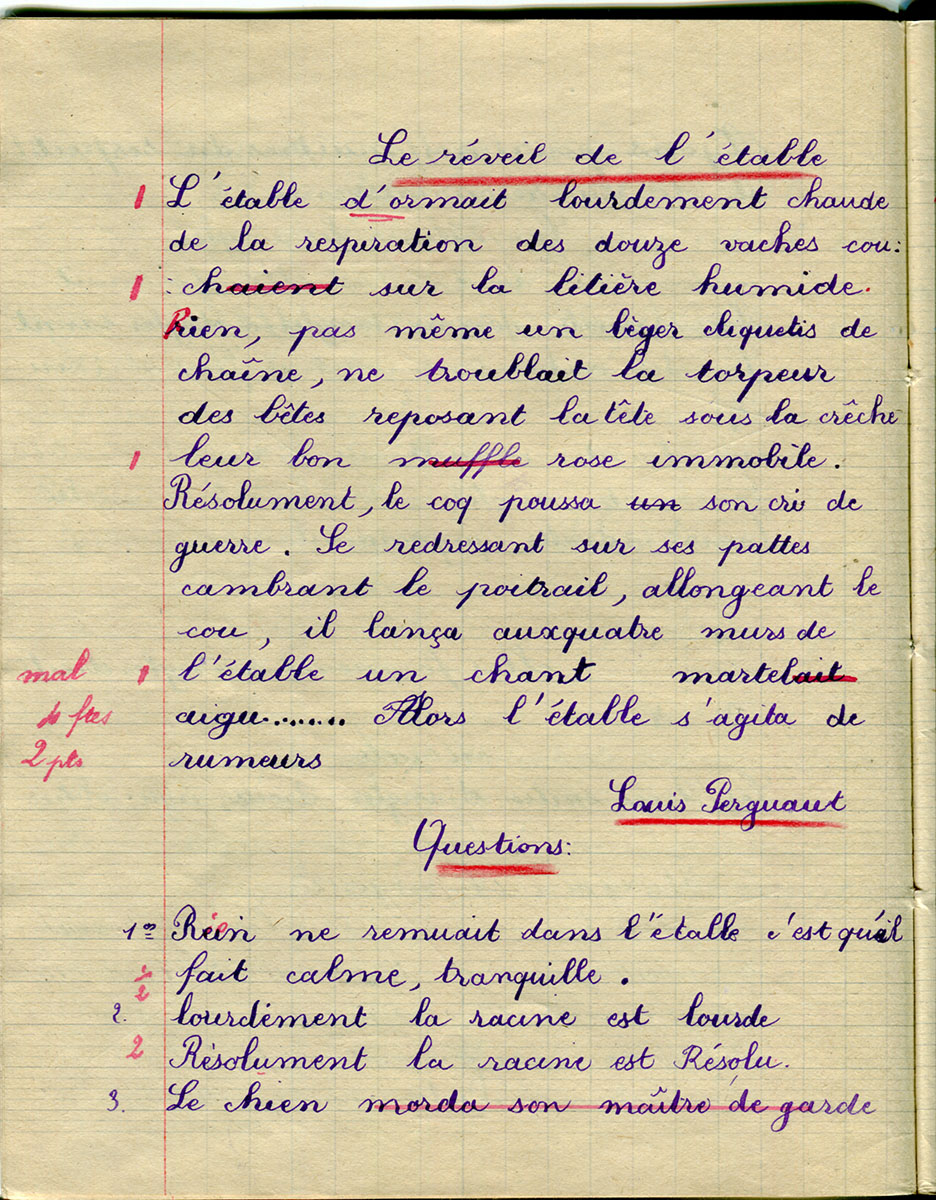 Le réveil de l'étable
1 L'étable d'ormait lourdement chaude
de la respiration des douze vaches cou:
1 : chaient sur la litière humide.
Rien, pas même un lèger cliquetis de
chaîne, ne troublait la torpeur
des bêtes reposant la tête sous la crêche
1 leur bon muffle rose immobile.
Résolument, le coq poussa un son cri de
guerre. Se redressant sur ses pattes
cambrant le poitrail, allongeant le
cou, il lança auxquatre murs de
mal 1 l'étable un chant martelait
4 ftes aigu........ Alors l'étable s'agita de
2 pts rumeurs
Louis Perguaut
Questions:
1º Rien ne remuait dans l'étalle c'est qu'il
fait calme, tranquille.
1/2
2. lourdément la racine est lourde
2 Résolument la racine est Résolu.
3. Le chien morda son maître de garde